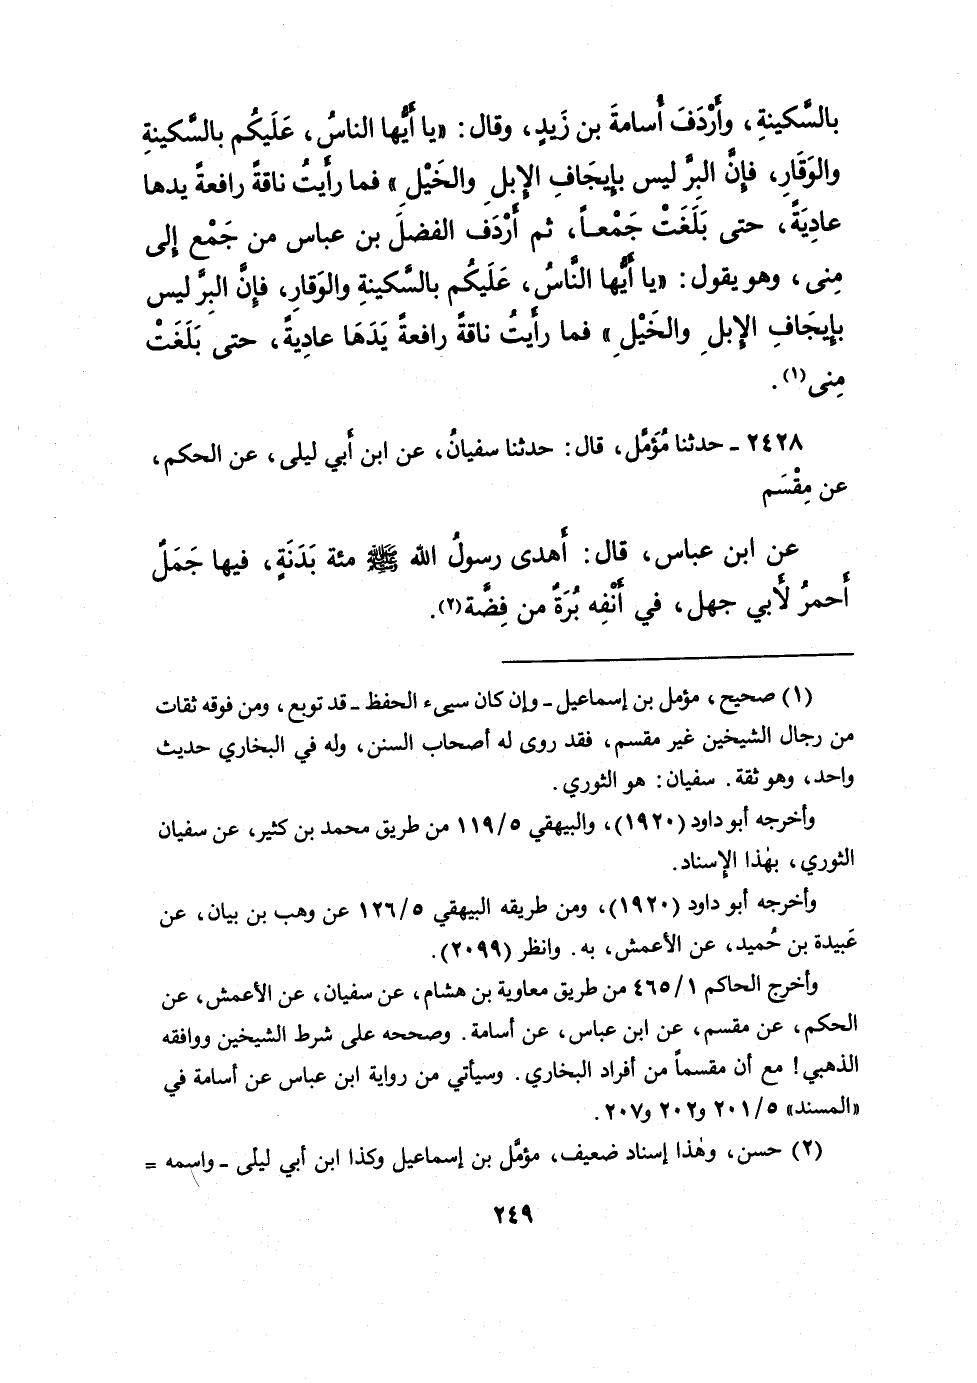 بالسَّكينةِ، وأَرْدَفَ أُسامةَ بن زَيدٍ، وقال: «يا أَيُّها الناسُ، عَلَيكُم بالسَّكينةِ
والوَقَارِ، فإِنَّ البِرَّ ليس بإِيجَافِ الإِبلِ والخَيْلِ» فما رأَيتُ ناقةً رافعةً يدها
عادِيَةً، حتى بَلَغَتْ جَمْعـاً، ثم أَرْدَف الفضلَ بن عباس من جَمْع إِلى
مِنى، وهو يقول: «يا أَيُّها النَّاسُ، عَلَيكُم بالسَّكينةِ والوَقارِ، فإِنَّ البِرَّ ليس
بإِيجَافِ الإِبلِ والخَيْلِ» فما رأَيتُ ناقةً رافعةً يَدَهَا عادِيةً، حتى بَلَغَتْ
مِنى(١).
٢٤٢٨ ـ حدثنا مُؤَمَّل، قال: حدثنا سفيانُ، عن ابن أَبي ليلى، عن الحكم،
عن مِقْسَم
عن ابن عباس، قال: أَهدى رسولُ الله ﷺ مئة بَدَنَةٍ، فيها جَمَلٌ
أَحمرُ لأَبي جهل، في أَنْفِه بُرَةٌ من فِضَّة(٢).
(١) صحيح، مؤمل بن إسماعيل ـ وإن كان سيىء الحفظ ـ قد توبع، ومن فوقه ثقات
من رجال الشيخين غير مقسم، فقد روى له أصحاب السنن، وله في البخاري حديث
واحد، وهو ثقة. سفيان: هو الثوري.
وأخرجه أبو داود (١٩٢٠)، والبيهقي ١١٩/٥ من طريق محمد بن كثير، عن سفيان
الثوري، بهٰذا الإسناد.
وأخرجه أبو داود (١٩٢٠)، ومن طريقه البيهقي ١٢٦/٥ عن وهب بن بيان، عن
عَبيدة بن حُميد، عن الأعمش، به. وانظر (٢٠٩٩).
وأخرج الحاكم ٤٦٥/١ من طريق معاوية بن هشام، عن سفيان، عن الأعمش، عن
الحكم، عن مقسم، عن ابن عباس، عن أسامة. وصححه على شرط الشيخين ووافقه
الذهبي! مع أن مقسماً من أفراد البخاري. وسيأتي من رواية ابن عباس عن أسامة في
«المسند» ٢٠١/٥ و٢٠٢ و٢٠٧.
(٢) حسن، وهٰذا إسناد ضعيف، مؤمَّل بن إسماعيل وكذا ابن أبي ليلى ـ واسمه =
٢٤٩